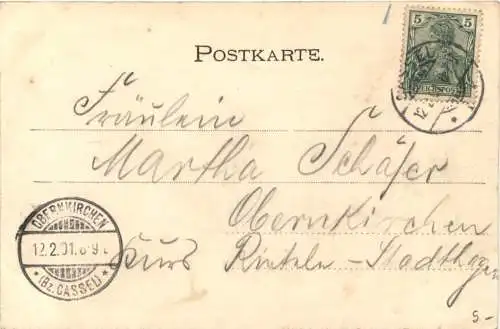 5
POSTKARTE.
REICHSPOST
Fräulein
Martha Schäfer
Obernkirchen
OBERNKIRCHEN
12.2.01. 8-9
* (BZ. CASSEL) *
Kurs Rinteln-Stadthagen
5-